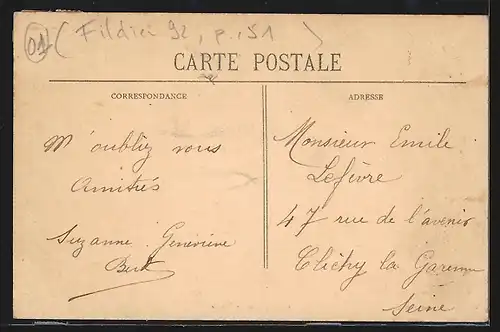 01 ( Fildier 92, p. 151 )
CARTE POSTALE
CORRESPONDANCE
ADRESSE
M'oubliez vous
Amitiés
Suzanne. Geneviève
Monsieur Emile
Lefèvre
47 rue de l'avenir
Clichy la Garenne
Seine